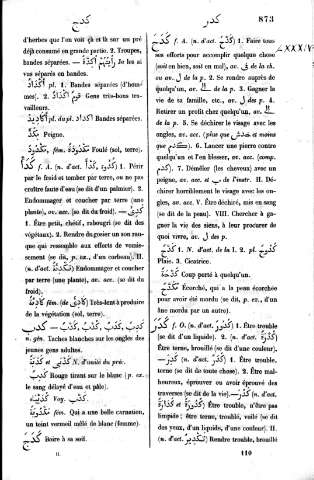 كدح
كدر
873
d'herbes que l'on voit çà et là sur un pré
déjà consumé en grande partie. 2. Troupes,
bandes séparées. — رَأَيْتُهُمْ أَكْدَادًا Je les ai
vus séparés en bandes.
أَكْدَادٌ pl. 1. Bandes séparées (d'hommes).
2. قَوْمٌ أَكْدَادٌ Gens très-bons travailleurs.
أَكَادِيدُ pl. du plur. أَكْدَادٌ Bandes séparées.
مِكَدٌّ Peigne.
مَكْدُودٌ, fém. مَكْدُودَةٌ Foulé (sol, terre).
كَدَأَ f. A. (n. d'act.) 1. Périr
par le froid et tomber par terre, ou ne pas
croître faute d'eau (se dit d'un palmier). 2.
Endommager et coucher par terre (une
plante), av. acc. (se dit du froid). —
1. Être petit, chétif, rabougri (se dit des
végétaux). 2. Rendre du gosier un son rauque
qui ressemble aux efforts de vomissement
(se dit, p. ex., d'un corbeau). II.
(n. d'act.) Endommager et coucher
par terre (une plante), av. acc. (se dit du
froid).
كَادِئَةٌ fém. (de كَادِئٌ) Très-lent à produire
de la végétation (sol, terre).
كَدْبٌ, كَدَبٌ, كُدْبٌ —
n. gén. Taches blanches sur les ongles des
jeunes gens adultes.
كَدْبَةٌ N. d'unité du préc.
كَدِبٌ Rouge tirant sur le blanc (p. ex.
le sang délayé d'eau et pâle).
كُدَيْبَاءُ Voy. كَدْبٌ.
مَكْدُوبَةٌ fém. Qui a une belle carnation,
un teint vermeil mêlé de blanc (femme).
كَدَجَ Boire à sa soif.
II.
كَدَحَ f. A. (n. d'act. كَدْحٌ) 1. Faire tous
ses efforts pour accomplir quelque chose
(soit en bien, soit en mal), av. فى de la ch.
ou av. ل de la p. 2. Se rendre auprès de
quelqu'un, av. إلى de la p. 3. Gagner la
vie de sa famille, etc., av. ل des p. 4.
Retirer un profit de quelqu'un, av. acc. de
la p. 5. Se déchirer le visage avec les
ongles, av. acc. (plus que خدش et moins
que كدم). 6. Lancer une pierre contre
quelqu'un et l'en blesser, av. acc. (comp.
كدح). 7. Démêler (les cheveux) avec un
peigne, av. acc. et ب de l'instr. II. Déchirer
horriblement le visage avec les ongles,
av. acc. V. Être déchiré, mis en sang
(se dit de la peau). VIII. Chercher à gagner
la vie des siens, à leur procurer de
quoi vivre, av. ل des p.
كَدْحٌ 1. N. d'act. de la I. 2. pl. كُدُوحٌ
Plaie. 3. Cicatrice.
كَدْحَةٌ Coup porté à quelqu'un.
مُكَدَّحٌ Écorché, qui a la peau écorchée
pour avoir été mordu (se dit, p. ex., d'un
âne mordu par un autre).
كَدَرَ f. O. (n. d'act. كَدْرٌ) 1. Être trouble
(se dit d'un liquide). 2. (n. d'act. كُدْرَةٌ)
Être terne, brouillé (se dit d'une couleur).
— كَدِرَ f. A. (n. d'act. كَدَرٌ) 1. Être trouble,
terne (se dit de toute chose). 2. Être malheureux,
éprouver ou avoir éprouvé des
traverses (se dit de la vie).—كَدُرَ (n. d'act.
كُدُورَةٌ et كَدَارَةٌ) Être trouble, n'être pas
limpide; être terne, trouble, voilé (se dit
des yeux, d'un liquide, d'une couleur). II.
(n. d'act. تَكْدِيرٌ) Rendre trouble, brouillé
110